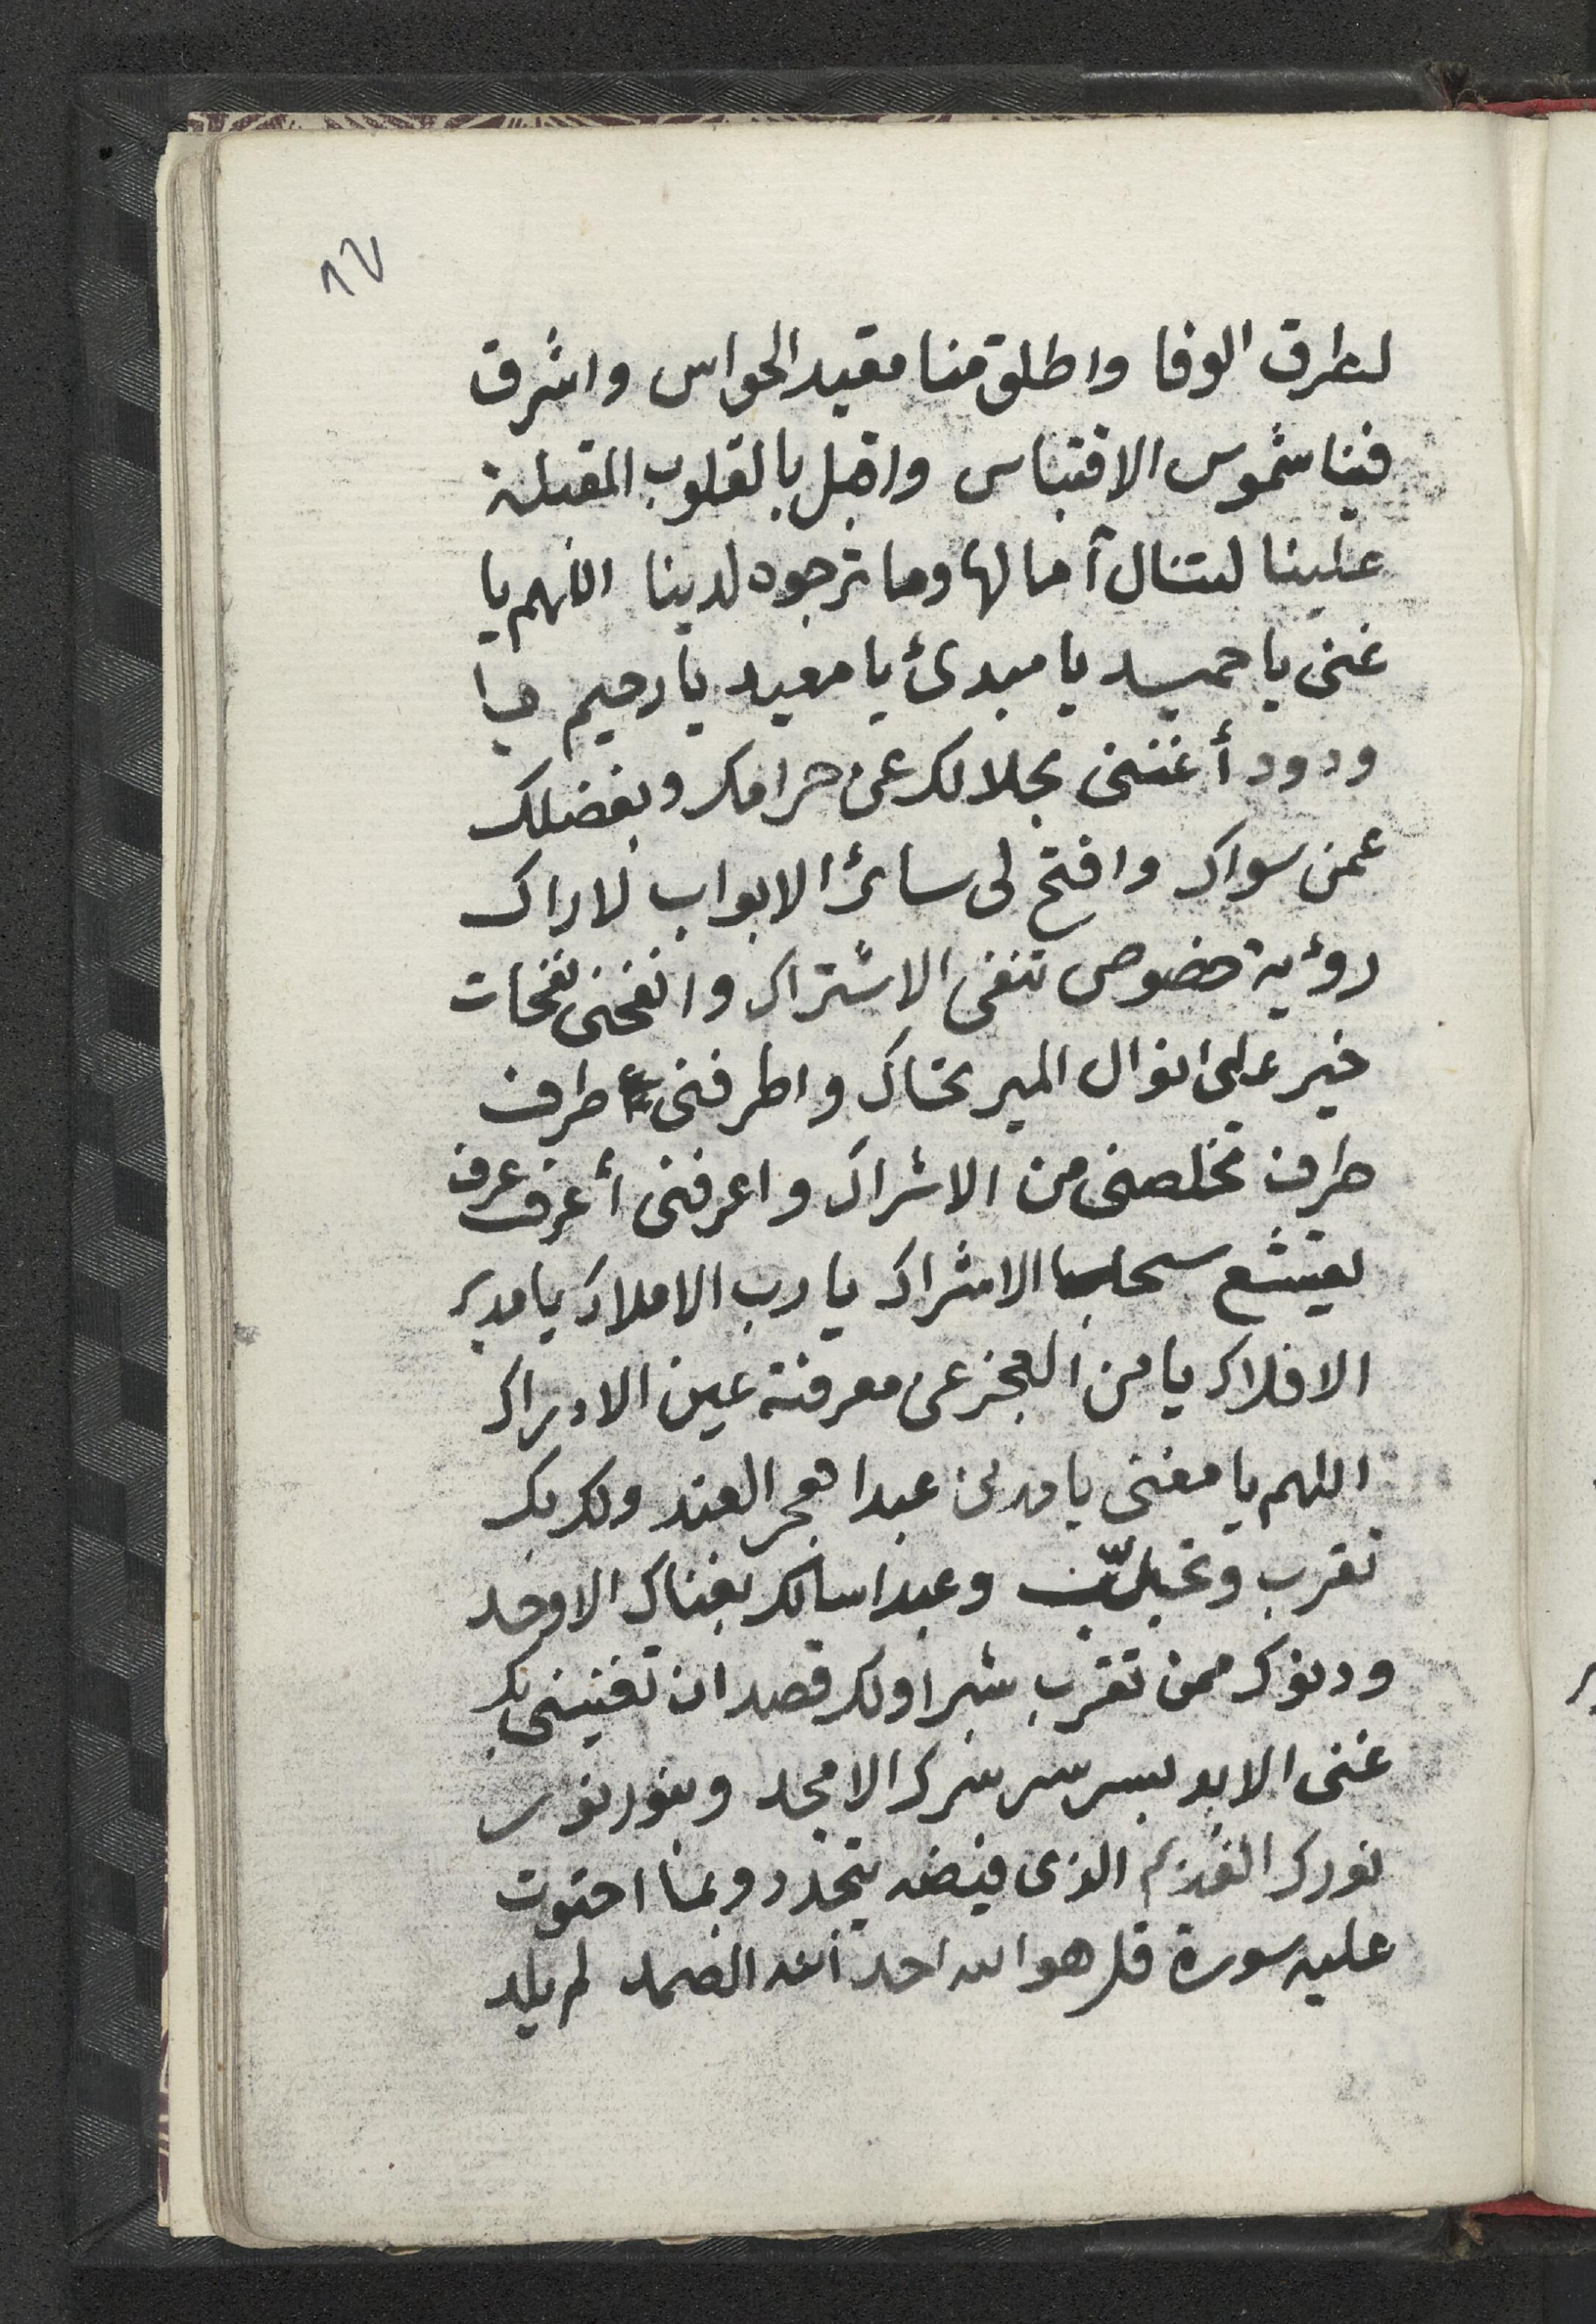 ١٧
لطرق الوفا واطلق منا مقيد الحواس واشرق
فينا شموس الاقتباس واقبل بالقلوب المقبلة
علينا لتنال آمالها وما ترجوه لدينا اللهم يا
غنى يا حميد يا مبدئ يا معيد يا رحيم يا
ودود أغننى بحلالك عن حرامك وبفضلك
عمن سواك وافتح لى سائر الابواب لاراك
رؤية خصوص تنفى الاشتراك وانفحنى نفحات
خير على انوال واطرفنى طرف
طرف تخلصنى من الاشراك واعرفنى أعرف عرف
يقشع سحاب الاشراك يا رب الاملاك يا مدير
الافلاك يا من العجز عن معرفته عين الادراك
اللهم يا مغنى عبدا هجر العند ولك بك
تقرب وعبدا سالك بغناك الاوحد
ودنوك ممن تقرب شبرا ولك قصد ان تغنينى بك
غنى الابد بسر سر سرك الامجد وبنور نور
نورك الذى فيضه يتجدد وبما احتوت
عليه سورة قل هو الله احد الله الصمد لم يلد